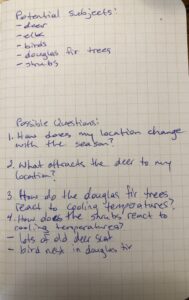 Potential subjects:
- deer
- elk
- birds
- douglas fir trees
- shrubs
Possible Questions:
1. How does my location change
with the season?
2. What attracts the deer to my
location?
3 How do the douglas fir trees
react to cooling temperatures?
4. How does the shrubs react to
cooling temperatures?
- lots of old deer scat
- bird nest in douglas fir